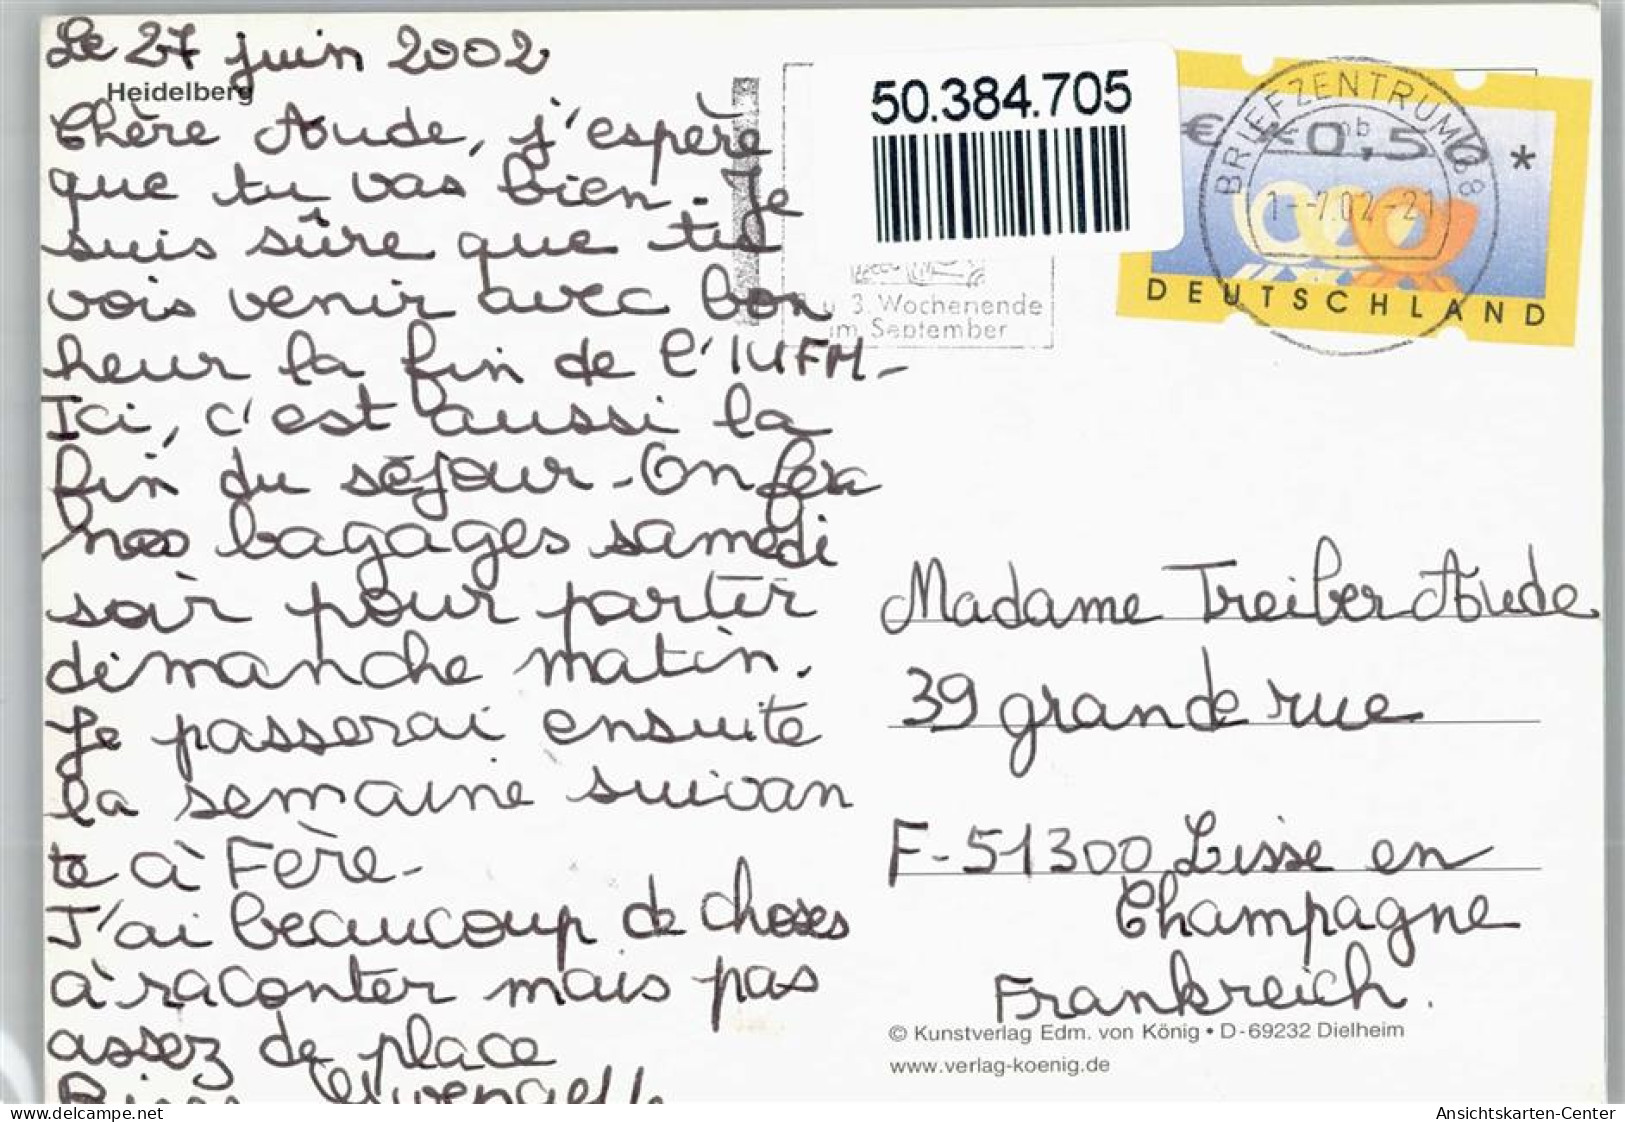 Le 27 juin 2002
Heidelberg
Chère Aude, j'espère
que tu vas bien. Je
suis sûre que tu
vois venir avec bon
heur la fin de l'IUFM-
Ici, c'est aussi la
fin du séjour. On fera
nos bagages samedi
soir pour partir
dimanche matin.
Je passerai ensuite
la semaine suivan
te à Fère-
J'ai beaucoup de choses
à raconter mais pas
assez de place
Bises Gwenaëlle
50.384.705
3. Wochenende
im September
BRIEFZENTRUM 68
1.-7.02-21
€ *0,56 *
DEUTSCHLAND
Madame Treiber Aude
39 grande rue
F-51300 Lisse en
Champagne
Frankreich.
© Kunstverlag Edm. von König • D-69232 Dielheim
www.verlag-koenig.de
delcampe.net
Ansichtskarten-Center